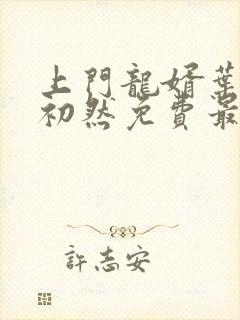 上門龍婿葉
初然免費最
許志安